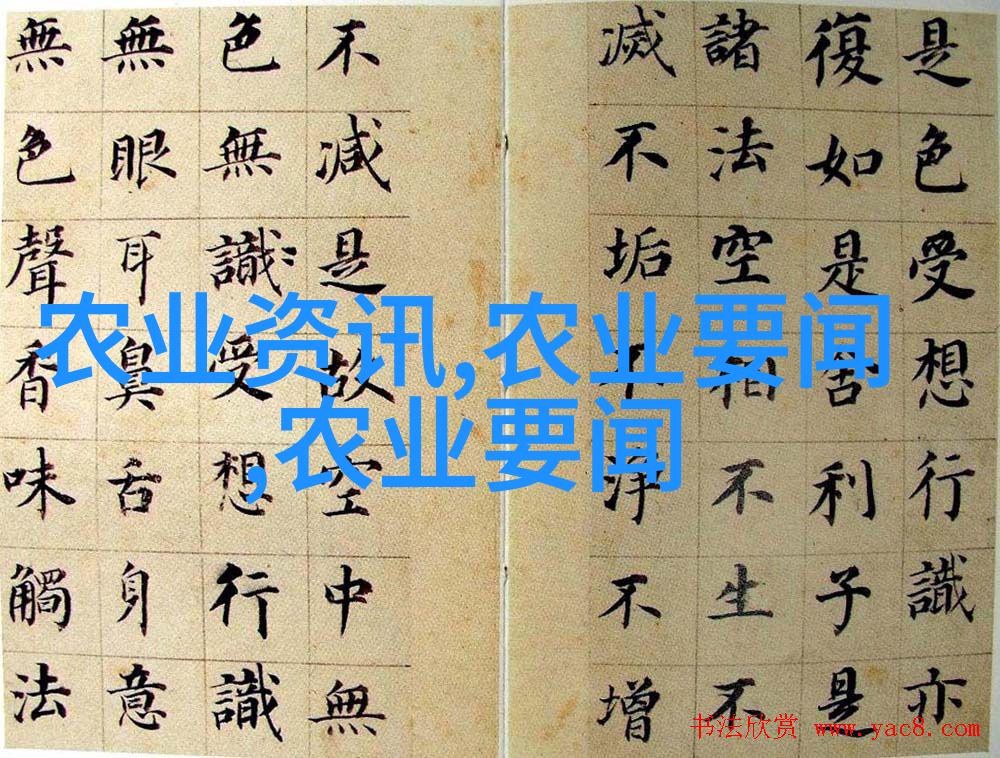 是色受想行識亦
復如是舍利子是
諸法空相不生不
滅不垢不淨不增
不減是故空中無
色無識受想行識
無眼耳鼻舌身意
無色聲香味觸法
农业资讯,农业要闻
,农业要闻
书法欣赏 www.yac8.com